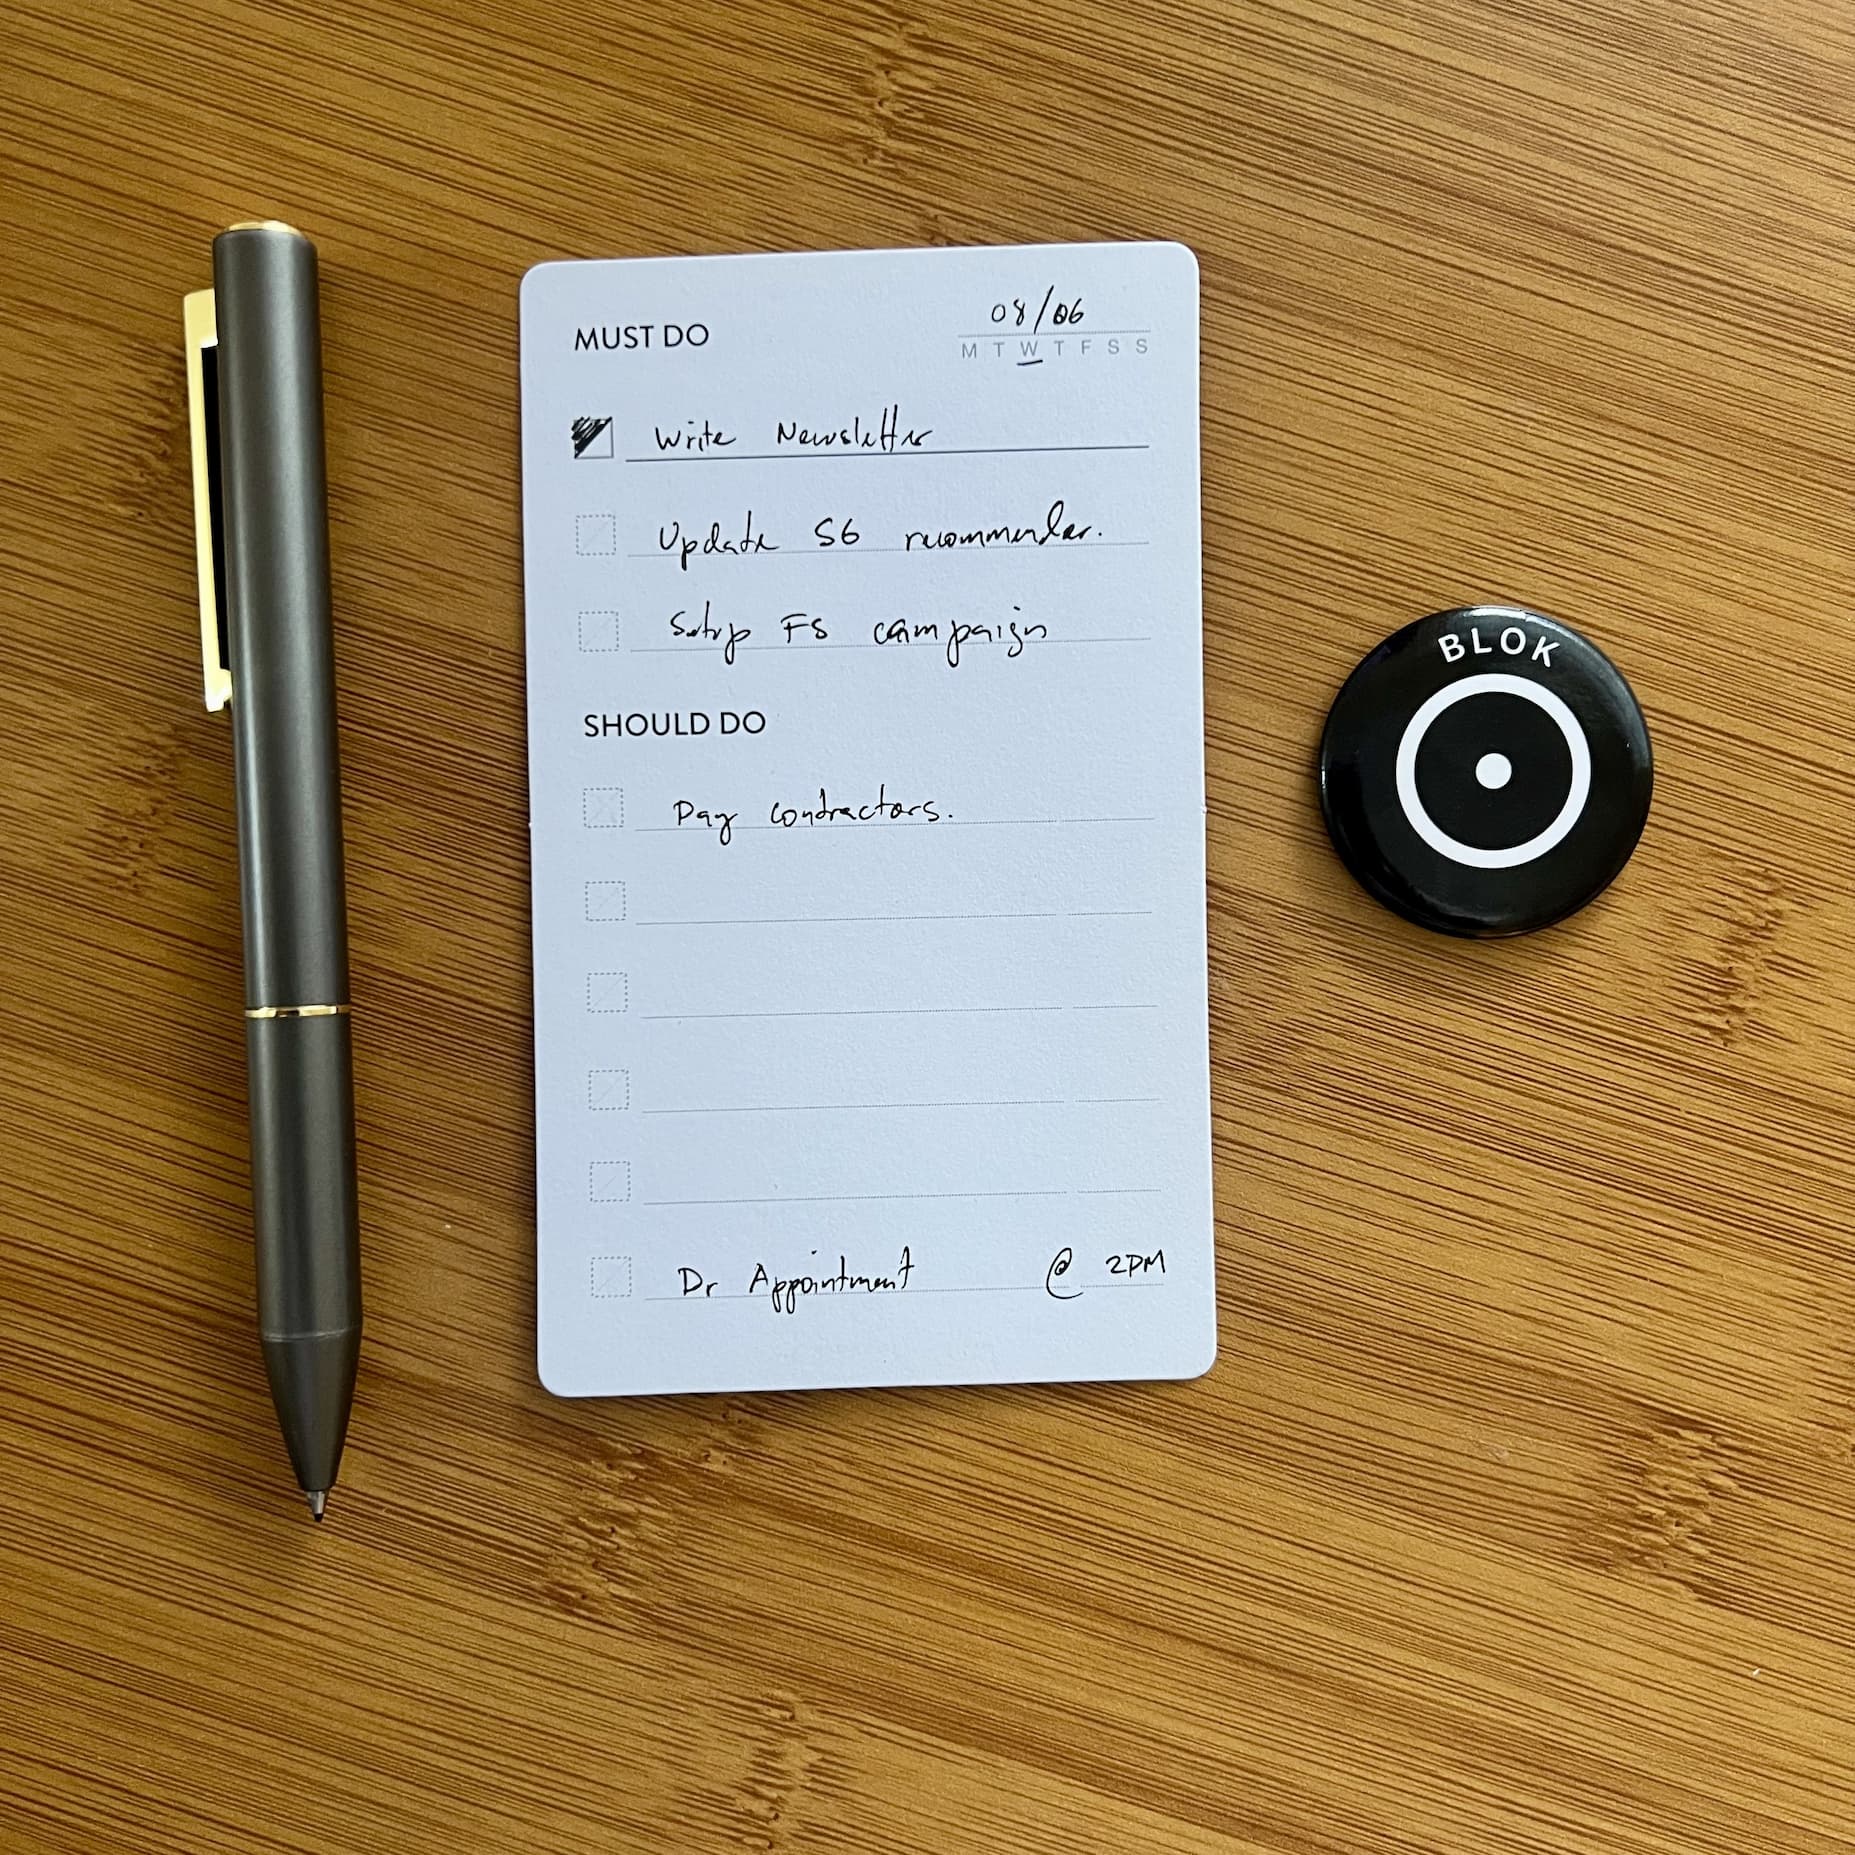 MUST DO
08/06
M T W T F S S
Write Newsletter
Update S6 recommender.
Setup FS campaign
SHOULD DO
Pay contractors.
Dr Appointment @ 2PM
BLOK